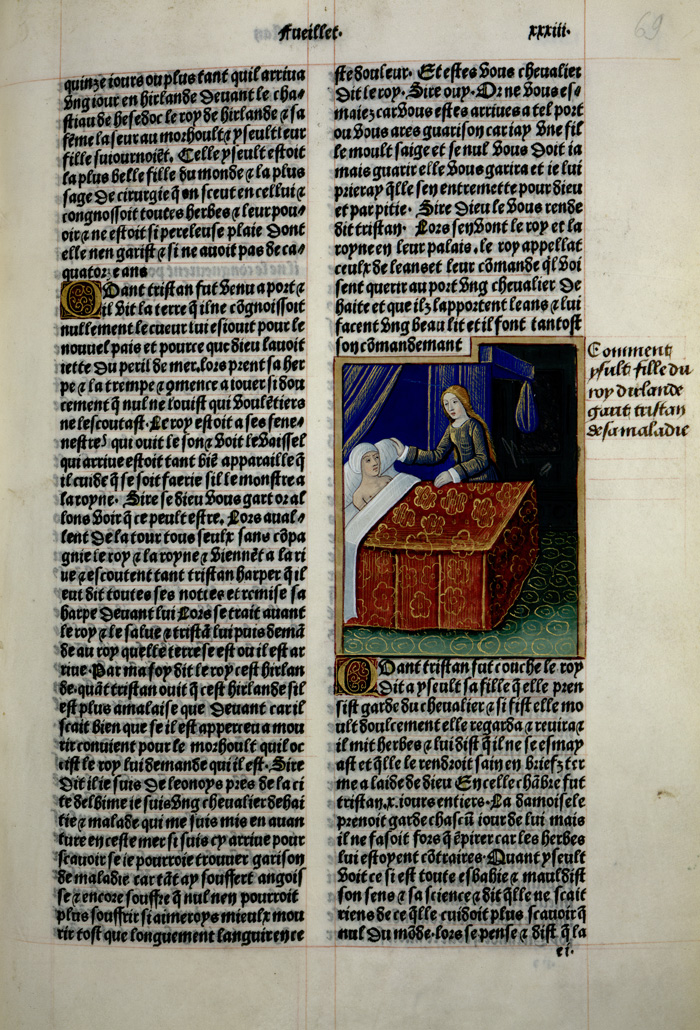 Fueillet. xxxiii. 69
quinze iours ou plus tant quil arriua
vng iour en hirlande deuant le cha⸗
stiau de hesedoc le roy de hirlande ⁊ sa
fẽme la seur au morhoult ⁊ yseult leur
fille suiournoiẽt. Celle yseult estoit
la plus belle fille du monde ⁊ la plus
sage de cirurgie q̃ on sceut en cellui ⁊
congnossoit toutes herbes ⁊ leur pou⸗
oir ⁊ ne estoit si pereleuse plaie dont
elle nen garist ⁊ si ne auoit pas de ca⸗
quatorze ans
Quant tristan fut venu a port ⁊
il vit la terre q̃ il ne cõgnoissoit
nullement le cueur lui esiouit pour le
nouuel pais et pource que dieu lauoit
iette du peril de mer. lors prent sa her
pe ⁊ la trempe ⁊ cmence a iouer si dou
cement q̃ nul ne louist qui voulẽtiers
ne lescoutast. Le roy estoit a ses fene⸗
nestres qui ouit le son ⁊ voit le vaissel
qui arriue estoit tant biẽ apparaille q̃
il cuide q̃ se soit faerie si le monstre a
la royne. Sire se dieu vous gart or al
lons voir q̃ ce peult estre. Lors aual⸗
lent de la tour tous seulx sans cõpa
gnie le roy ⁊ la royne ⁊ viennẽt a la ri
ue ⁊ escoutent tant tristan harper q̃ il
eut dit toutes ses nottes et remise sa
harpe deuant lui Lors se trait auant
le roy ⁊ le salue ⁊ tristã lui puis demã
de au roy quelle terre se est ou il est ar
riue. Par ma foy dit le roy cest hirlan
de. quãt tristan ouit q̃ cest hirlande sil
est plus amalaise que deuant car il
scait bien que se il est apperceu a mou
rir conuient pour le morhoult quil oc
cist le roy lui demande qui il est. Sire
dit il ie suis de leonoys pres de la ci
te delbime ie suis vng cheualier dehai
tie ⁊ malade qui me suis mis en auan
ture en ceste mer si suis cy arriue pour
scauoir se ie pourroie trouuer garison
de maladie car tãt ay souffert angois
se ⁊ encore souffre q̃ nul nen pourroit
plus souffrir si aimeroys mieulx mou
rir tost que longuement languir en ce
ste douleur. Et estes vous cheualier
dit le roy. Sire ouy. Or ne vous es⸗
maiez car vous estes arriues a tel port
ou vous ares guarison car iay vne fil
le moult saige et se nul vous doit ia
mais guarir elle vous garira et ie lui
prieray q̃lle sen entremette pour dieu
et par pitie. Sire dieu le vous rende
dit tristan. Lors sen vont le roy et la
royne en leur palais. le roy appellat
ceulx de leans et leur cõmande q̃l voi
sent querir au port vng cheualier de
haite et que ilz lapportent leans ⁊ lui
facent vng beau lit et il font tantost
son cõmandemant
Comment
yseult fille du
roy dirlande
garit tristan
de sa maladie
Quant tristan fut couche le roy
dit a yseult sa fille q̃ elle pren
sist garde du cheualier ⁊ si fist elle mo
ult doulcement elle regarda ⁊ reuira ⁊
il mit herbes ⁊ lui dist q̃ il ne se esmay
ast et q̃lle le rendroit sain en brief ter
me a laide de dieu En celle chãbre fut
tristan .x. iours entiers. La damoisele
prenoit garde chascũ iour de lui mais
il ne fasoit fors q̃ ẽpirer car les herbes
lui estoyent cõtraires. Quant yseult
voit ce si est toute esbahie ⁊ mauldist
son sens ⁊ sa science ⁊ dit q̃lle ne scait
riens de ce q̃lle cuidoit plus scauoir q̃
nul du mõde. lors se pense ⁊ dist q̃ la
ei.